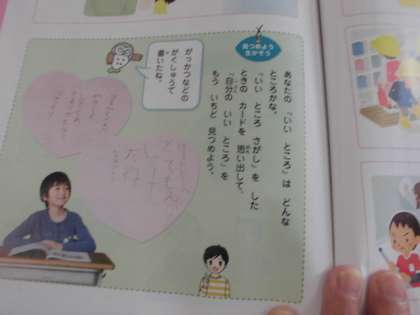 見つめよう
生かそう
あなたの 「いい ところ」は どんな
ところかな。
「いい ところ さがし」を した
ときの カードを 思い出して、
「自分の いい ところ」を
もう いちど 見つめよう。
がっかつなどの
がくしゅうで
書いたね。